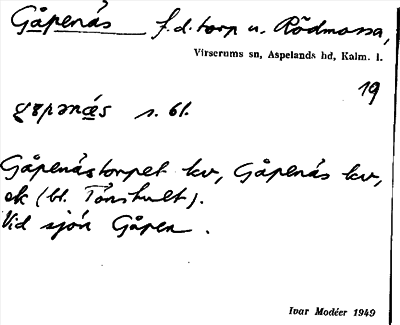 Gåpenäs f.d. torp u. Rödmossa,
Virserums sn, Aspelands hd, Kalm. l.
19
s. 61.
Gåpenästorpet kv, Gåpenäs kv,
ek (bl. Tönshult).
Vid sjön Gåpen.
Ivar Modéer 1949